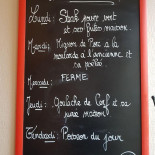 Lundi : Steak sauce vert
et ses frites maison.
Mardi : Mignon de Porc a la
moutarde a l'ancienne et
sa poêlée.
Mercredi : FERMÉ
Jeudi : Goulache de Cerf et sa
purée maison
Vendredi : Poisson du jour